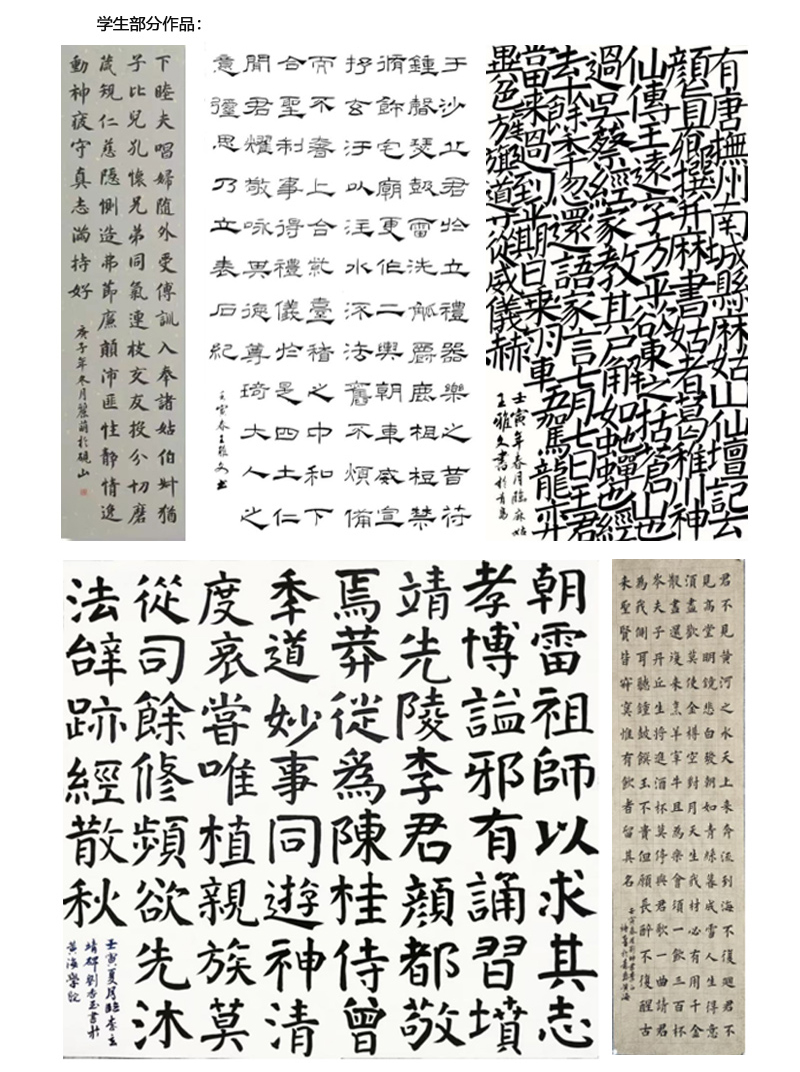 学生部分作品：
下睦夫唱婦随外受傅訓入奉諸姑伯叔猶
子比兒孔懷兄弟同氣連枝交友投分切磨
箴規仁慈隱惻造弗節廉顛沛匪性静情逸
動神疲守真志滿持好
庚子年冬月麗萌於硯山
于沙丘君於立禮器樂之音符
鍾磬瑟鼓雷洗觚爵鹿柤梪禁
脩飾宅廟更作二輿朝車威宣
抒玄汙以注水流法舊不煩備
而不奢上合紫臺稽之中和下
合聖制事得禮儀於是四土仁
聞君燿敬咏其德尊琦大人之
意逴思乃立表石紀
壬寅春王雅文书
有唐撫州南城縣麻姑山仙壇記去
顏真卿撰并麻書姑者葛稚川神
仙傳王遠字方平欲東之括蒼山也
過吳蔡經家教其尸解如蛇蟬也經
去十餘年忽還語家言七月七日王君
當来過到期日乘羽車五駕龍
異色旌旗道從威儀赫
壬寅年春月臨麻姑
王雅文書於青島
朝雷祖師以求其志
孝博謚邪有誦習墳
靖先陵李君顔都敬
焉莽從為陳桂侍曾
秊道妙事同遊神清
度哀嘗唯植親族莫
從司餘修頻欲先沐
法辥跡經散秋
壬寅夏月臨李玄
靖碑劉杏玉書於
黄海學院
君不見黄河之水天上来奔流到海不復迴君不
見高堂明鏡悲白髮朝如青絲暮成雪人生得意
須盡歡莫使金樽空對月天生我材必有用千金
散盡還復来烹羊宰牛且為樂會須一飲三百杯
岑夫子丹丘生将進酒杯莫停與君歌一曲請君
為我側耳聽鍾鼓饌玉不貴但願長醉不復醒古
来聖賢皆寂寞惟有飲者留其名